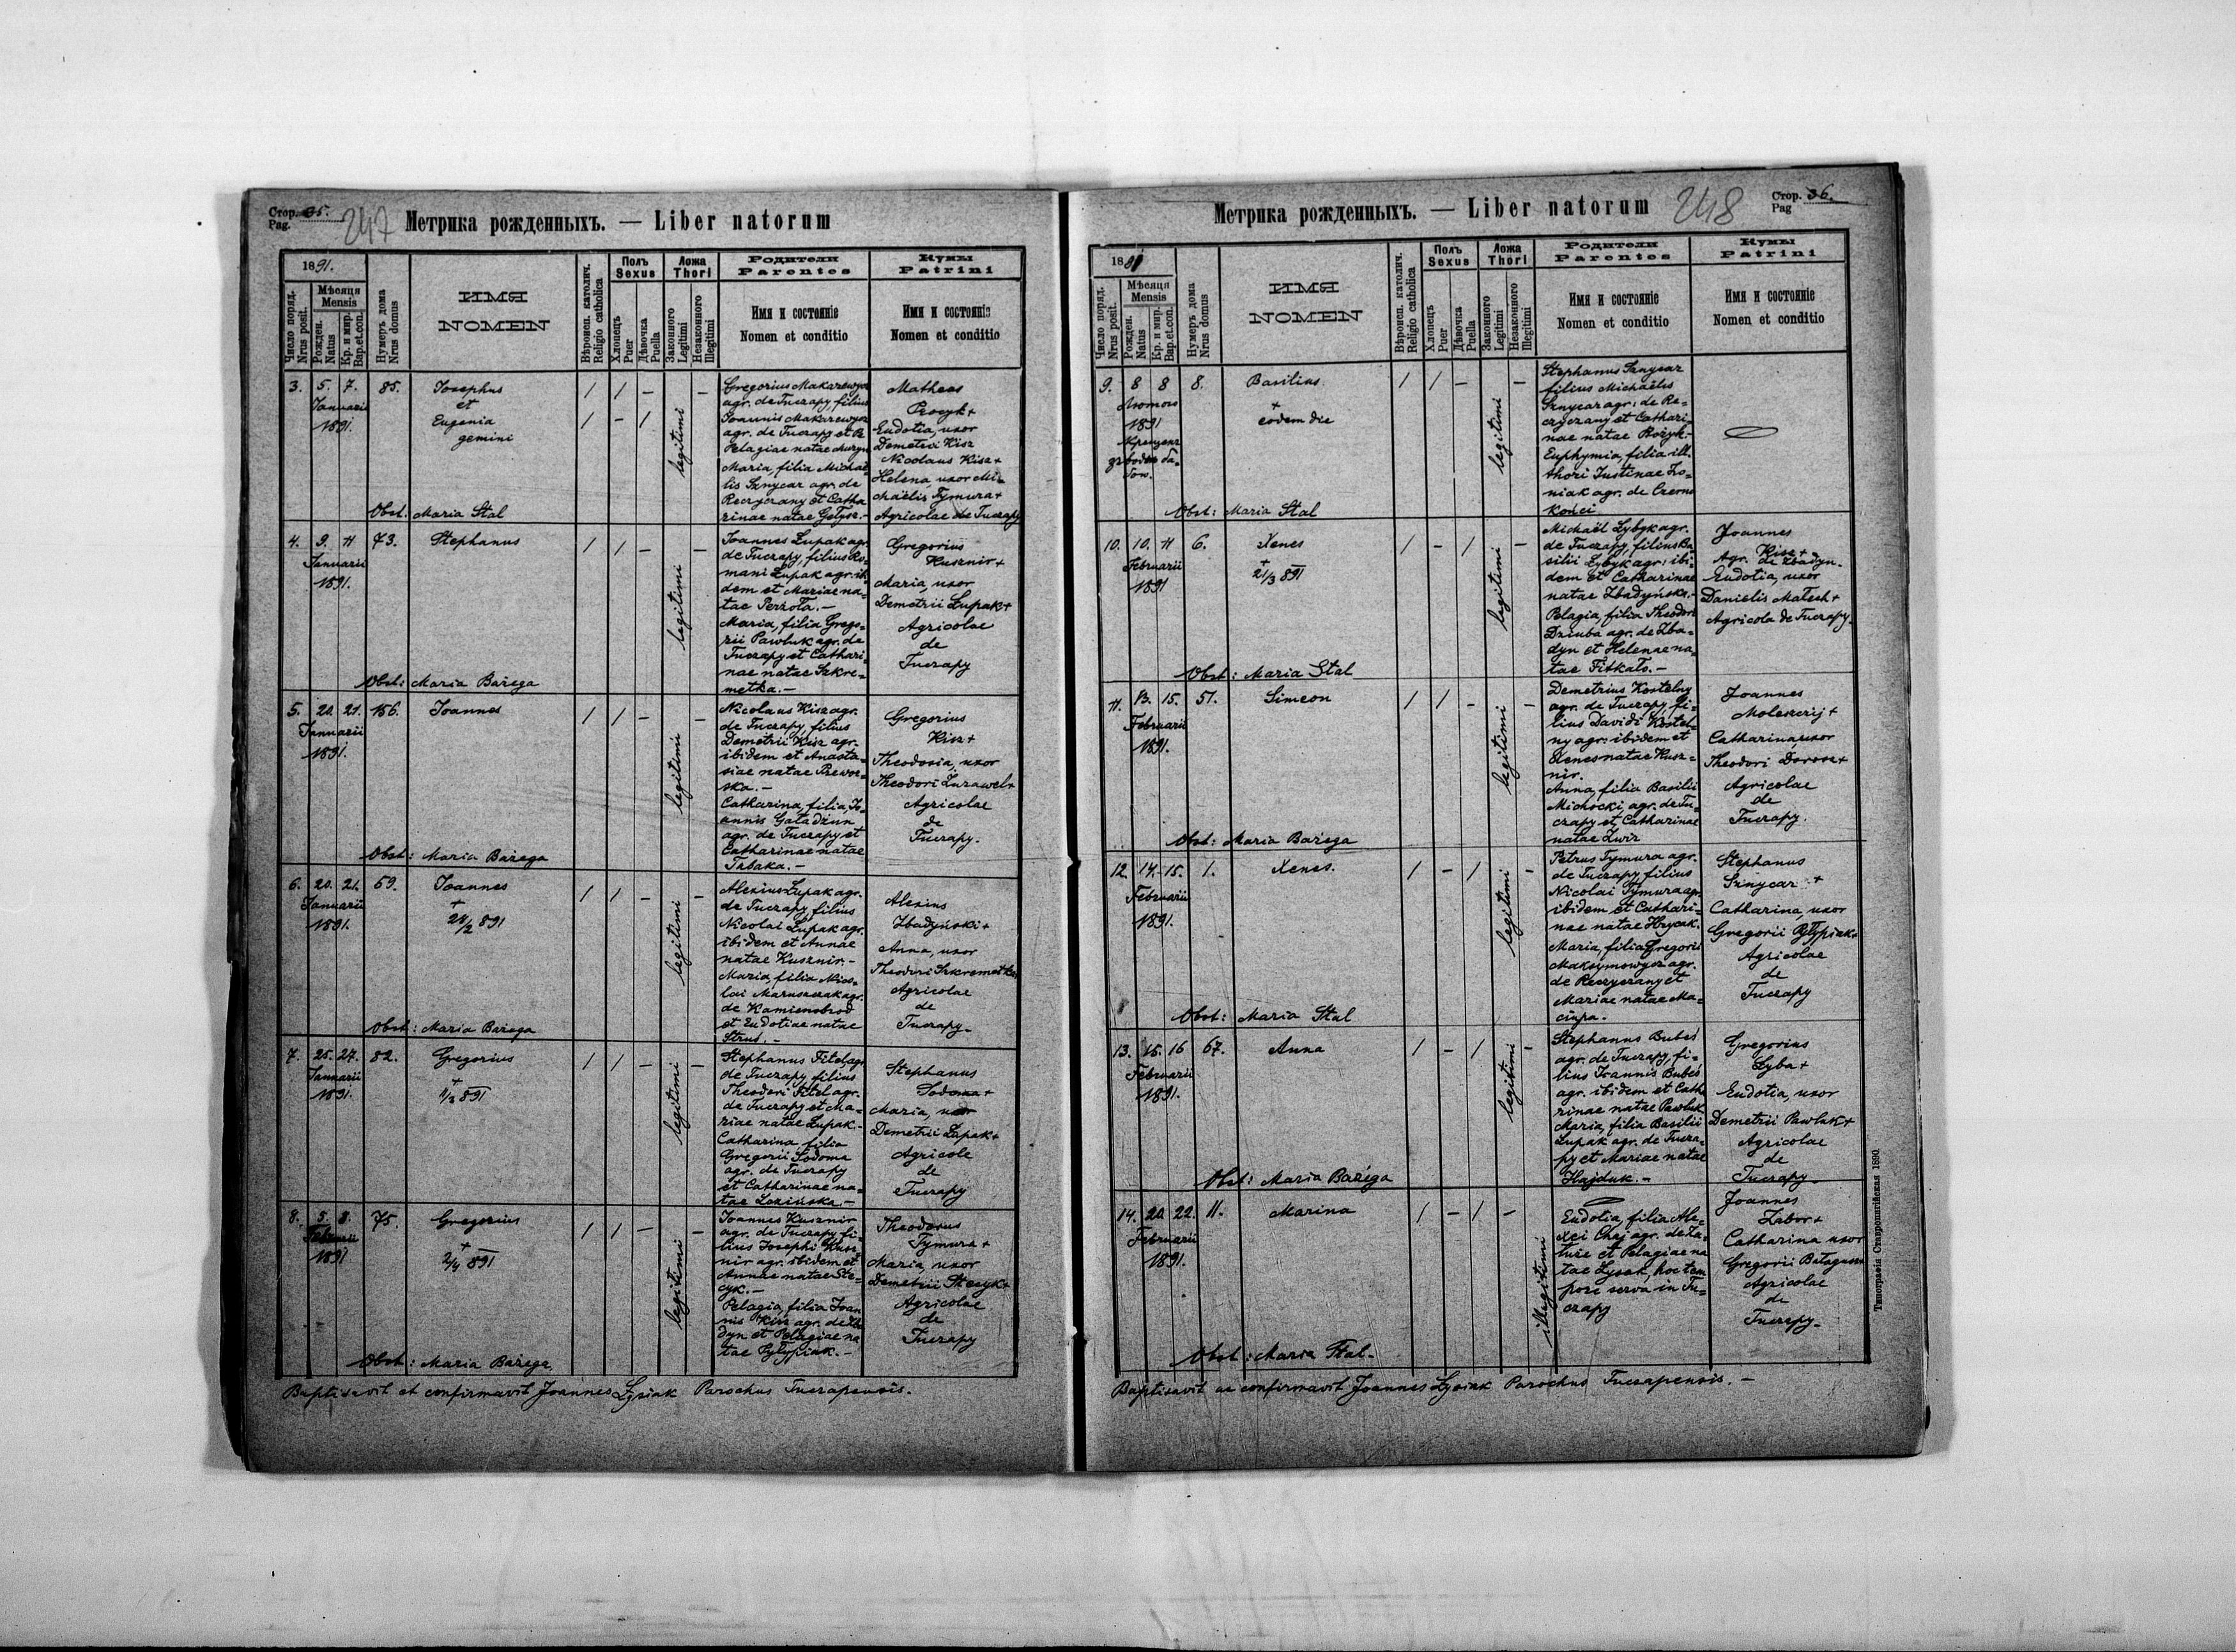 Стор. 35.
Pag.
247
Метрика рожденныхъ. — Liber natorum
1891.
Число поряд.
Nrus posit.
Мѣсяця
Mensis
Рожден.
Natus
Кр. и мир.
Bap. et con.
Нумеръ дома
Nrus domus
ИМЯ
NOMEN
Вѣроисп. католич.
Religio catholica
Полъ
Sexus
Хлопецъ
Puer
Дѣвочка
Puella
Ложа
Thori
Законного
Legitimi
Незаконного
Illegitimi
Родители
Parentes
Имя и состояніе
Nomen et conditio
Кумы
Patrini
Имя и состояніе
Nomen et conditio
3. 5. 7. 85.
Januarii
1891.
Josephus
et
Eugenia
gemini
/ / —
/ — /
legitimi
Gregorius Makarewycz
agr. de Tuczapy, filius
Joannis Makarewycz
agr. de Tuczapy et
Pelagiae natae
Maria, filia Michaë
lis Sznycar agr. de
Reczyczany et Catha
rinae natae Gołysz.-
Matheus
Procyk+
Eudotia, uxor
Demetrii Kisz
Nicolaus Kisz+
Helena, uxor Mi-
chaëlis Tymura+
Agricolae de Tuczapy
Obst. Maria Stal
4. 9. 11 73.
Januarii
1891.
Stephanus
/ / — —
legitimi
Joannes Łupak agr.
de Tuczapy, filius Ro-
mani Łupak agr. ibi
dem et Mariae na-
tae Perxoła.—
Maria, filia Grego-
rii Pawluk agr. de
Tuczapy et Cathari-
nae natae Szkre-
metka.—
Gregorius
Kusznir+
Maria, uxor
Demetrii Łupak+
Agricolae
de
Tuczapy
Obst: Maria Bażega
5. 20. 21. 156.
Januarii
1891.
Joannes
/ / — —
legitimi
Nicolaus Kisz agr.
de Tuczapy, filius
Demetrii Kisz agr.
ibidem et Anasta-
siae natae Prewor-
ska.—
Catharina, filia Jo-
annis Gaładżun
agr. de Tuczapy et
Catharinae natae
Tabaka.—
Gregorius
Kisz+
Theodosia, uxor
Theodori Żurawel+
Agricolae
de
Tuczapy.
Obst: Maria Bażega
6. 20. 21. 69.
Januarii
1891.
Joannes
+
24/2 891
/ / — —
legitimi
Alexius Łupak agr.
de Tuczapy, filius
Nicolai Łupak agr.
ibidem et Annae
natae Kusznir.—
Maria, filia Nico-
lai Maruszczak agr.
de Kamienobrod
et Eudotiae natae
Strus.—
Alexius
Zbadyński+
Anna, uxor
Theodori Szkremetka
Agricolae
de
Tuczapy.
Obst: Maria Bażega
7. 25. 27. 82.
Januarii
1891.
Gregorius
+
1/2 891
/ / — —
legitimi
Stephanus Fitel, agr.
de Tuczapy, filius
Theodori Fitel agr.
de Tuczapy et Ma-
riae natae Łupak.-
Catharina filia
Gregorii Sodoma
agr. de Tuczapy
et Catharinae na-
tae Łozińska.—
Stephanus
Sodoma+
Maria, uxor
Demetrii Łupak+
Agricolae
de
Tuczapy
8. 5. 8. 75.
Februarii
1891
Gregorius
+
2/4 891
/ / — —
legitimi
Joannes Kusznir
agr. de Tuczapy, fi-
lius Josephi Kusz-
nir agr. ibidem et
Annae natae Ste-
cyk.—
Pelagia, filia Joan
nis Kisz agr. de Zba
dyn et Pelagiae na
tae Pyłypiak.—
Theodorus
Tymura+
Maria, uxor
Demetrii Stecyk+
Agricolae
de
Tuczapy
Obst: Maria Bażega.
Baptisavit et confirmavit Joannes Łysiak Parochus Tuczapensis.
Стор. 36.
Pag
248
Метрика рожденныхъ. — Liber natorum
1891
Число поряд.
Nrus posit.
Мѣсяця
Mensis
Рожден.
Natus
Кр. и мир.
Bap. et con.
Нумеръ дома
Nrus domus
ИМЯ
NOMEN
Вѣроисп. католич.
Religio catholica
Полъ
Sexus
Хлопецъ
Puer
Дѣвочка
Puella
Ложа
Thori
Законного
Legitimi
Незаконного
Illegitimi
Родители
Parentes
Имя и состояніе
Nomen et conditio
Кумы
Patrini
Имя и состояніе
Nomen et conditio
9. 8 8 8.
1891
Basilius
+
eodem die
/ / — —
legitimi
Stephanus Sznycar
filius Michaëlis
Sznycar agr: de Re-
czyczany et Cathari-
nae natae Rożyk.-
Euphymia, filia ill.
thori Justinae Zo-
niak agr. de Czerno
końci
Obst: Maria Stal
10. 10. 11 6.
Februarii
1891
Xenes
+
21/3 891
/ — / —
legitimi
Michaël Łybyk agr.
de Tuczapy, filius Ba-
silii Łybyk agr: ibi-
dem et Catharinae
natae Zbadyńska.-
Pelagia, filia Theodori
Dziuba agr. de Zba-
dyn et Helenae na-
tae Fitkało.—
Joannes
Kisz+
Agr. de Zbadyn.
Eudotia, uxor
Danielis Matsch+
Agricola de Tuczapy.
Obst: Maria Stal
11. 13. 15. 51.
Februarii
1891.
Simeon
/ / — —
legitimi
Demetrius Kostelny
agr. de Tuczapy, fi-
lius Davidi Kostel-
ny agr: ibidem et
Xenes natae Kusz-
nir.
Anna, filia Basilii
Michocki, agr. de Tu-
czapy et Catharinae
natae Żwir
Joannes
Moleszczij+
Catharina, uxor
Theodori Dorosz+
Agricolae
de
Tuczapy.
Obst: Maria Bażega
12. 14. 15. 1.
Februarii
1891.
Xenes.
/ — / —
legitimi
Petrus Tymura agr.
de Tuczapy, filius
Nicolai Tymura agr
ibidem et Cathari-
nae natae Hrycak.
Maria, filia Gregorii
Maksymowycz agr.
de Reczyczany et
Mariae natae Ma-
ciupa.
Stephanus
Sznycar +
Catharina, uxor
Gregorii Pyłypiak+
Agricolae
de
Tuczapy
Obst: Maria Stal
13. 15. 16 67.
Februarii
1891.
Anna
/ — / —
legitimi
Stephanus Bubeś
agr. de Tuczapy, fi-
lius Joannis Bubeś
agr. ibidem et Catha
rinae natae Pawluk
Maria, filia Basilii
Łupak agr. de Tucza-
py et Mariae natae
Hajduk.—
Gregorius
Łyba+
Eudotia, uxor
Demetrii Pawluk+
Agricolae
de
Tuczapy
Obst: Maria Bażega
14. 20. 22. 11.
Februarii
1891.
Marina
/ — / —
illegitimi
Eudotia, filia Ale-
xei Chaj agr. de Za-
tuże et Pelagiae na
tae Łysak, hoc tem
pore serva in Tu-
czapy
Joannes
Zabor+
Catharina uxor
Gregorii
Agricolae
de
Tuczapy.
Obst: Maria Stal.
Baptisavit ac confirmavit Joannes Łysiak Parochus Tuczapensis.—
Типографія Ставропигійская 1890.